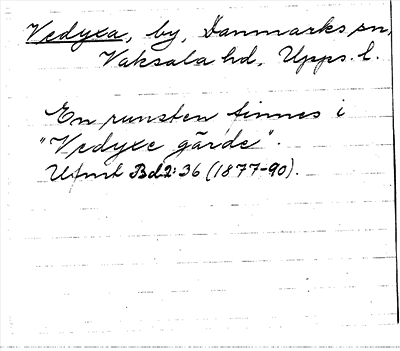 Vedyxa, by, Danmarks sn,
Vaksala hd, Upps. l.
En runsten finnes i
"Vedyxe gärde".
Ufmt Bd2:36 (1877-90).